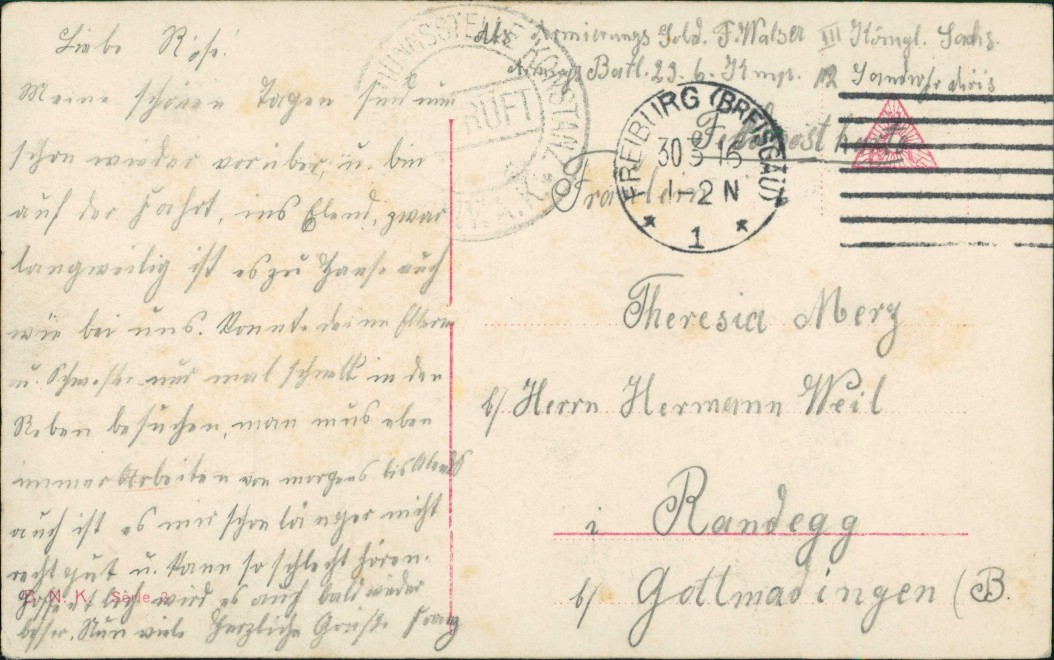 Liebe Rosi!
Meine schönen Tagen sind nun
schon wieder vorüber, u. bin
auf der Fahrt, ins Elend, zwar
langweilig ist es zu Hause auch
wie bei uns. Konnte deine Eltern
u. Schwester nur mal schnell in den
Reben besuchen, man mus eben
immer Arbeiten von morgens bis Abends
auch ist es mir schon länger nicht
recht gut u. kann so schlecht hören.
Hoffentlich wird es auch bald wieder
besser. Nun viele herzliche Grüße Franz
E. N. K. Serie 3
Abs. Armierungs Sold. F. Walser III Königl. Sachs.
Armgs Batl. 23. 6. Komp. 12 Landwehr divis
Feldpostkarte
Fräulein
Theresia Merz
b/ Herrn Hermann Weil
i Randegg
b/ Gottmadingen (B.
FREIBURG (BREISGAU)
30 9 16
1-2 N
* 1 *
KONSTANZ